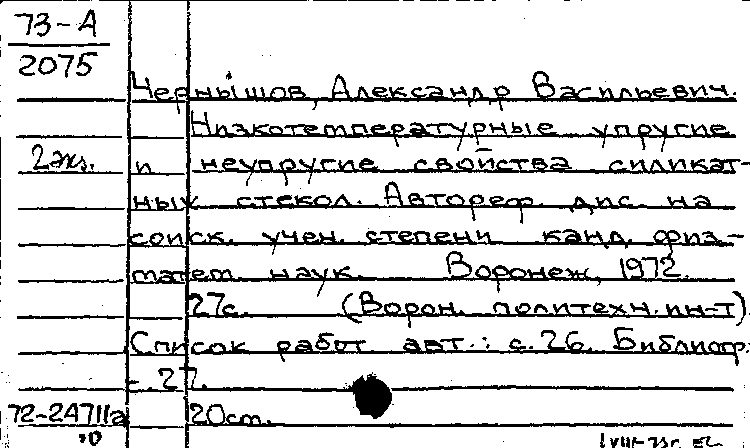 73-А
2075
Чернышов, Александр Васильевич.
Низкотемпературные упругие
2 экз. и неупругие свойства силикат-
ных стекол. Автореф. дис. на
соиск. учен. степени канд. физ-
матем. наук. Воронеж, 1972.
27с. (Ворон. политехн. ин-т).
Список работ авт.: с.26. Библиогр:
с. 27.
72-24711а 20см.